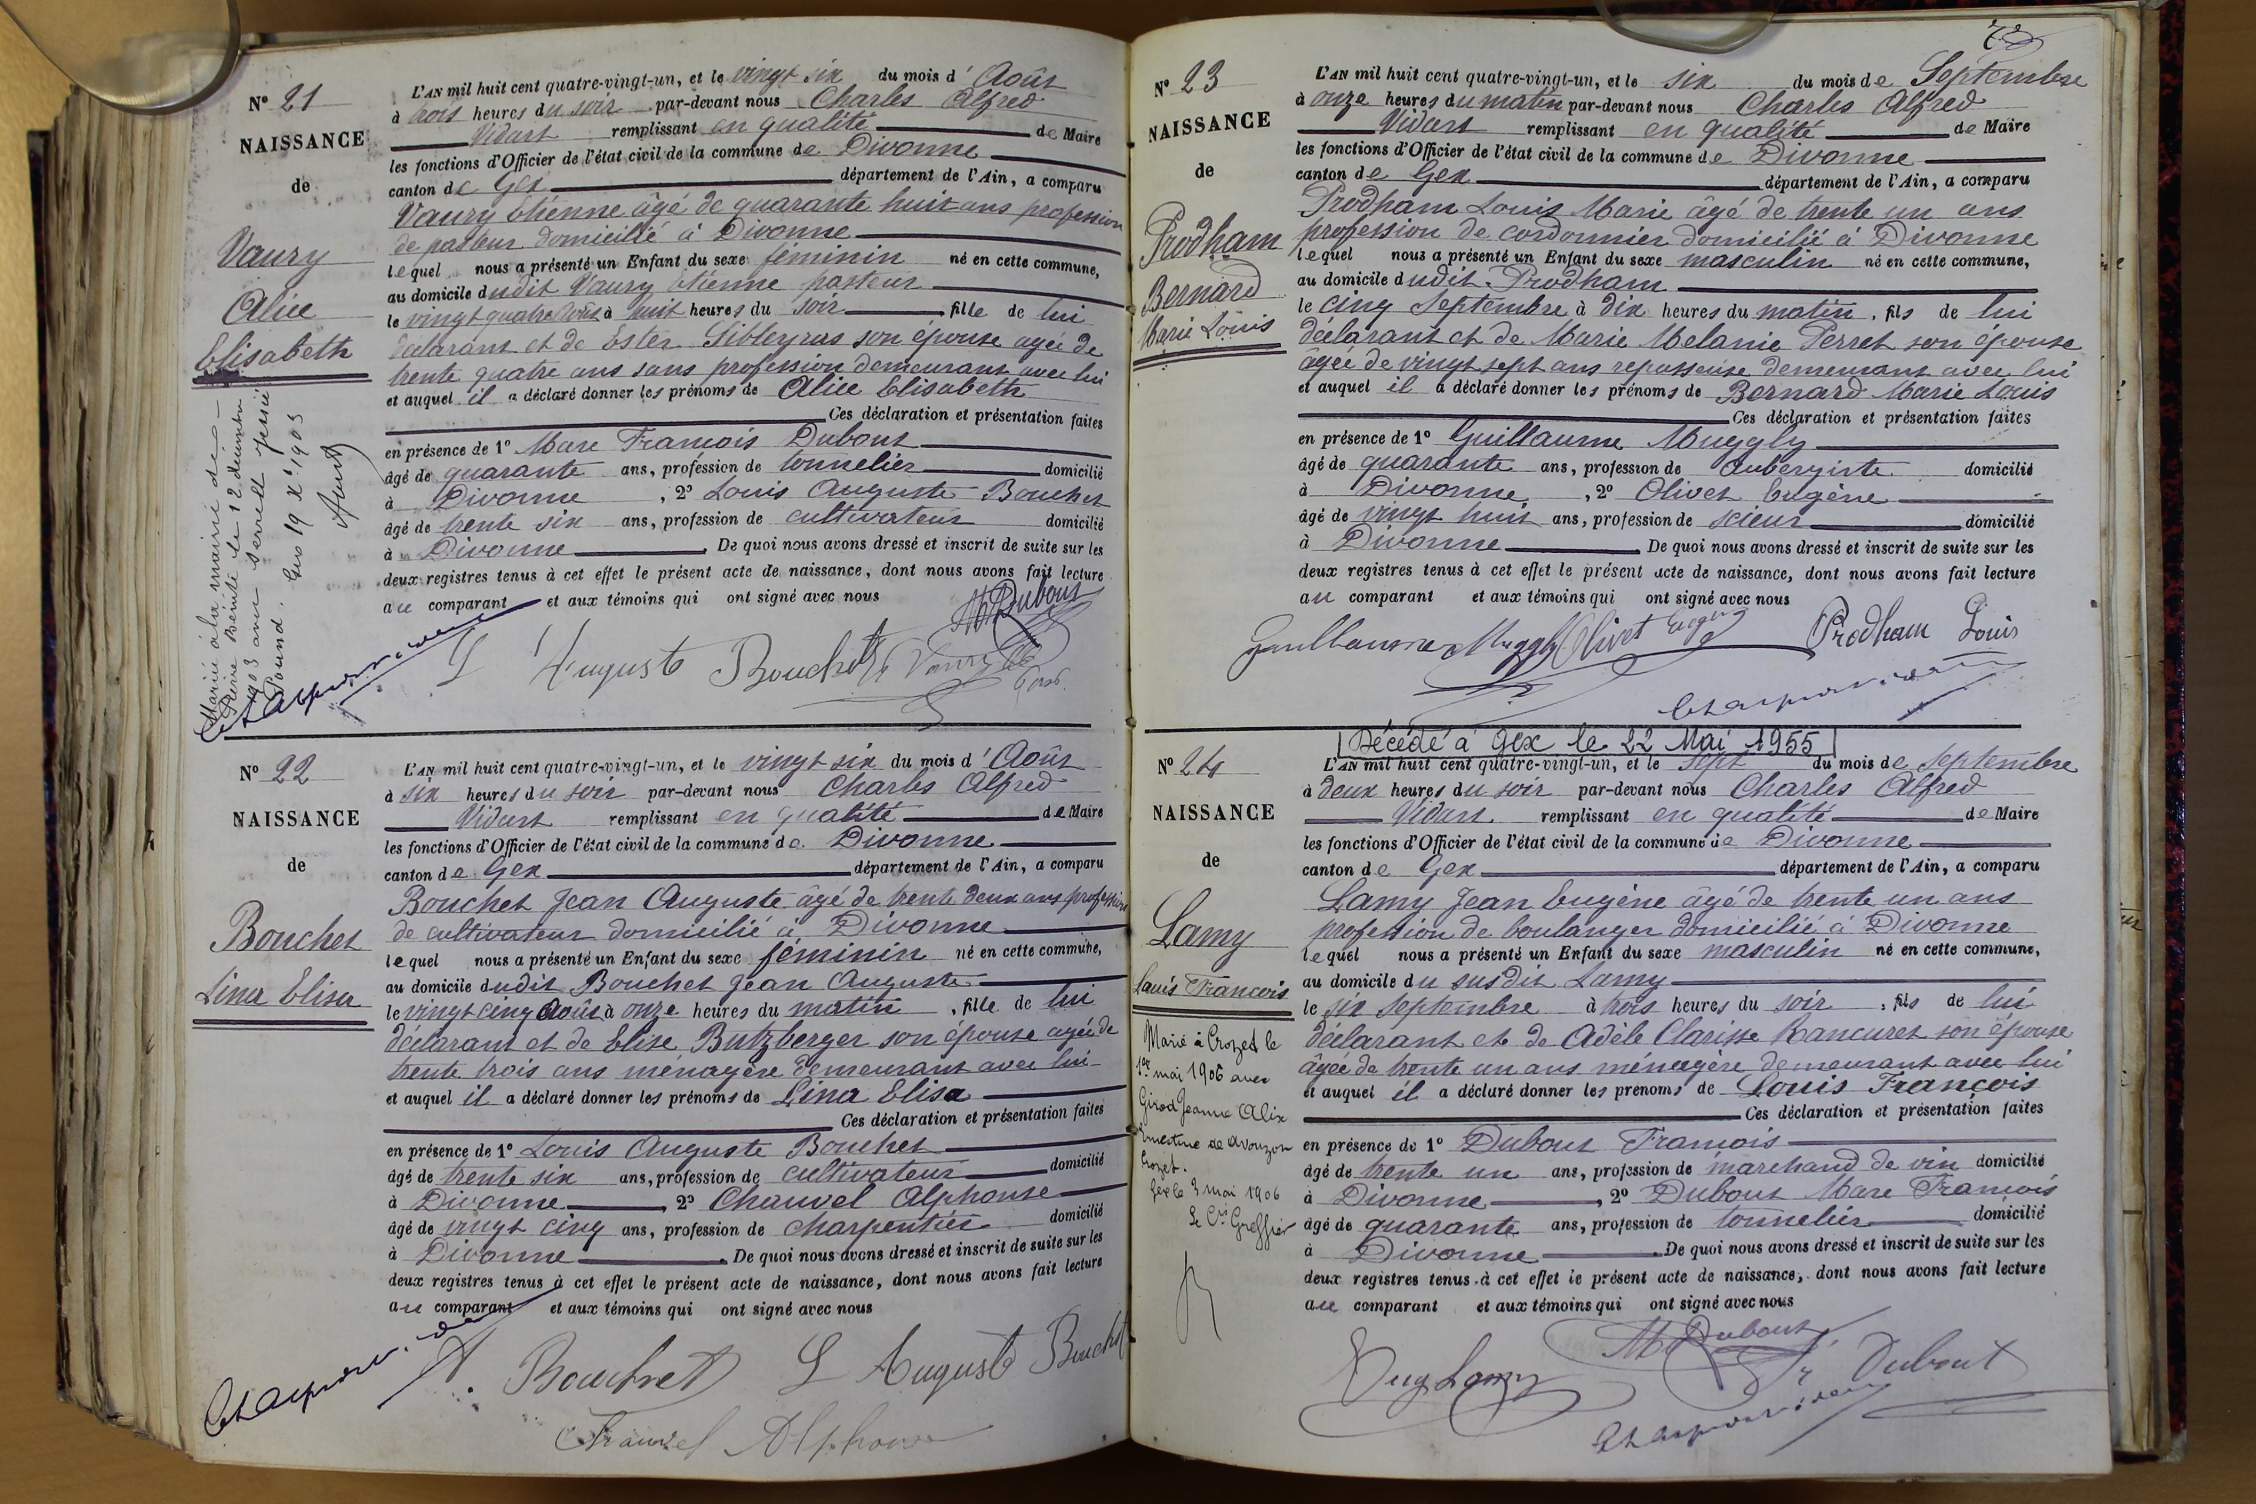 N° 21
NAISSANCE
de
Vaury
Alice
Elisabeth
Marié à la mairie de
Pierre Bénite le 12 décembre
1903 avec
Gex 19 Xe 1903
L'AN mil huit cent quatre-vingt-un, et le vingt six du mois d' Août
à trois heures du soir par-devant nous Charles Alfred
Vidart remplissant en qualité de Maire
les fonctions d'Officier de l'état civil de la commune de Divonne
canton de Gex département de l'Ain, a comparu
Vaury Etienne âgé de quarante huit ans profession
de pasteur domicilié à Divonne
lequel nous a présenté un Enfant du sexe féminin né en cette commune,
au domicile dudit Vaury Etienne pasteur
le vingt quatre Août à huit heures du soir fille de lui
déclarant et de Ester Sibleyras son épouse agée de
trente quatre ans sans profession demeurant avec lui
et auquel il a déclaré donner les prénoms de Alice Elisabeth
Ces déclaration et présentation faites
en présence de 1° Marc François Dubout
âgé de quarante ans, profession de tonnelier domicilié
à Divonne, 2° Louis Auguste Bouchet
âgé de trente six ans, profession de cultivateur domicilié
à Divonne. De quoi nous avons dressé et inscrit de suite sur les
deux registres tenus à cet effet le présent acte de naissance, dont nous avons fait lecture
au comparant et aux témoins qui ont signé avec nous
M Dubout
L Auguste Bouchet Vaury
N° 22
NAISSANCE
de
Bouchet
Lina Elisa
L'AN mil huit cent quatre-vingt-un, et le vingt six du mois d' Août
à six heures du soir par-devant nous Charles Alfred
Vidart remplissant en qualité de Maire
les fonctions d'Officier de l'état civil de la commune de Divonne
canton de Gex département de l'Ain, a comparu
Bouchet Jean Auguste âgé de trente deux ans profession
de cultivateur domicilié à Divonne
lequel nous a présenté un Enfant du sexe féminin né en cette commune,
au domicile dudit Bouchet Jean Auguste
le vingt cinq Août à onze heures du matin, fille de lui
déclarant et de Elise Butzberger son épouse agée de
trente trois ans ménagère demeurant avec lui
et auquel il a déclaré donner les prénoms de Lina Elisa
Ces déclaration et présentation faites
en présence de 1° Louis Auguste Bouchet
âgé de trente six ans, profession de cultivateur domicilié
à Divonne, 2° Chauvel Alphonse
âgé de vingt cinq ans, profession de charpentier domicilié
à Divonne. De quoi nous avons dressé et inscrit de suite sur les
deux registres tenus à cet effet le présent acte de naissance, dont nous avons fait lecture
au comparant et aux témoins qui ont signé avec nous
A Bouchet L Auguste Bouchet
Chauvel Alphonse
N° 23
NAISSANCE
de
Prodham
Bernard
Marie Louis
L'AN mil huit cent quatre-vingt-un, et le six du mois de Septembre
à onze heures du matin par-devant nous Charles Alfred
Vidart remplissant en qualité de Maire
les fonctions d'Officier de l'état civil de la commune de Divonne
canton de Gex département de l'Ain, a comparu
Prodham Louis Marie âgé de trente un ans
profession de cordonnier domicilié à Divonne
lequel nous a présenté un Enfant du sexe masculin né en cette commune,
au domicile dudit Prodham
le cinq Septembre à dix heures du matin, fils de lui
déclarant et de Marie Melanie Perret son épouse
agée de vingt sept ans repasseuse demeurant avec lui
et auquel il a déclaré donner les prénoms de Bernard Marie Louis
Ces déclaration et présentation faites
en présence de 1° Guillaume Muggly
âgé de quarante ans, profession de Aubergiste domicilié
à Divonne, 2° Olivet Eugène
âgé de vingt huit ans, profession de scieur domicilié
à Divonne De quoi nous avons dressé et inscrit de suite sur les
deux registres tenus à cet effet le présent acte de naissance, dont nous avons fait lecture
au comparant et aux témoins qui ont signé avec nous
Guillaume Muggly Olivet Eugène Prodham Louis
Décédé à Gex le 22 Mai 1955
N° 24
NAISSANCE
de
Lamy
Louis François
Marié à Crozet le
1er mai 1906 avec
Girod Jeanne Alix
Ernestine de Avouzon
Crozet.
Gex le 3 mai 1906
Le Cis Greffier
L'AN mil huit cent quatre-vingt-un, et le sept du mois de Septembre
à deux heures du soir par-devant nous Charles Alfred
Vidart remplissant en qualité de Maire
les fonctions d'Officier de l'état civil de la commune de Divonne
canton de Gex département de l'Ain, a comparu
Lamy Jean Eugène âgé de trente un ans
profession de boulanger domicilié à Divonne
lequel nous a présenté un Enfant du sexe masculin né en cette commune,
au domicile du susdit Lamy
le six Septembre à trois heures du soir, fils de lui
déclarant et de Adèle Clarisse Rancuret son épouse
âgée de trente un ans ménagère demeurant avec lui
et auquel il a déclaré donner les prénoms de Louis François
Ces déclaration et présentation faites
en présence de 1° Dubout François
âgé de trente un ans, profession de marchand de vin domicilié
à Divonne, 2° Dubout Marc François
âgé de quarante ans, profession de tonnelier domicilié
à Divonne. De quoi nous avons dressé et inscrit de suite sur les
deux registres tenus à cet effet le présent acte de naissance, dont nous avons fait lecture
au comparant et aux témoins qui ont signé avec nous
M Dubout
Eug Lamy Fs Dubout